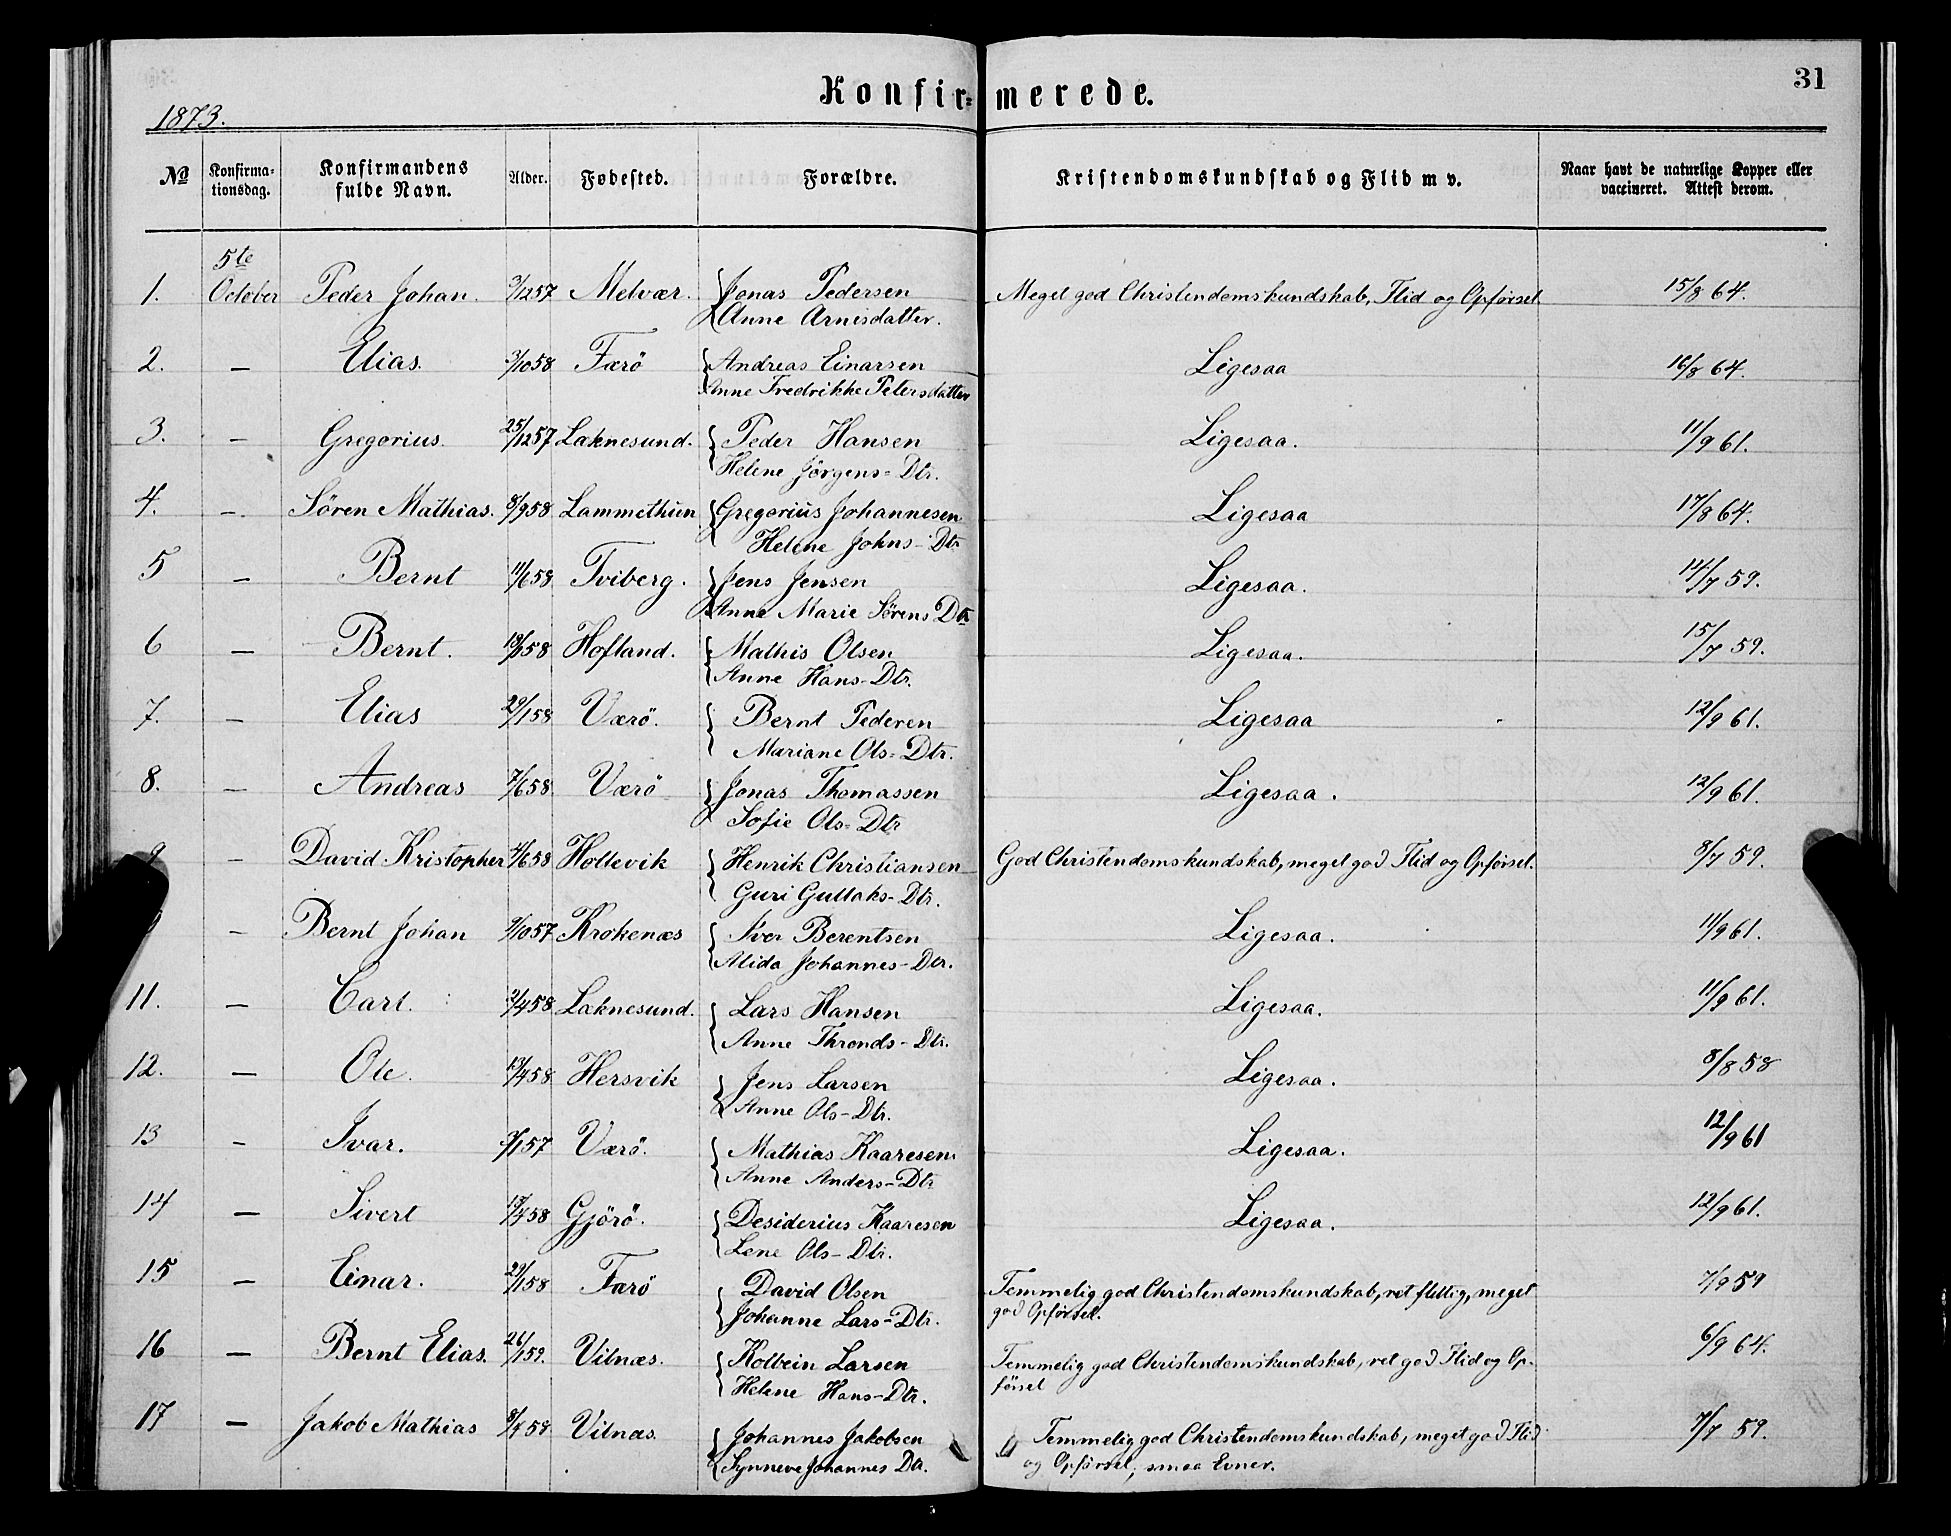 Konfir-merede.
31
1873.
No Konfirma-tionsdag. Konfirmandens fulde Navn. Alder. Fødested. Forældre. Kristendomskundskab og Flid m v. Naar havt de naturlige Kopper eller vaccineret. Attest derom.
5te
1. October Peder Johan. 3/12 57 Melvær. Jonas Pedersen Meget god Christendomskundskab, Flid og Opførsel. 15/8 64.
Anne Arnisdatter.
2. — Elias. 3/10 58 Færö Andreas Einarsen Ligesaa 16/8 64.
Anne Fredrikke Petersdatter
3. — Gregorius. 25/12 57 Laknesund. Peder Hansen Ligesaa. 11/9 61.
Helene Jörgens-Dtr.
4. — Sören Mathias. 8/9 58 Lammethun Gregorius Johannesen Ligesaa 17/8 64.
Helene Johns-Dtr
5 — Bernt 11/6 58 Tviberg. Jens Jensen Ligesaa. 14/7 59.
Anne Marie Sörens Dtr
6 — Bernt. 58 Hofland. Mathis Olsen Ligesaa. 15/7 59.
Anne Hans-Dtr.
7. — Elias 29/1 58 Værö. Bernt Pedersen Ligesaa 12/9 61.
Mariane Ols-Dtr.
8. — Andreas 7/6 58 Værö Jonas Thomassen Ligesaa. 12/9 61.
Sofie Ols-Dtr
9 — David Kristopher 4/6 58 Holtevik Henrik Christiansen God Christendomskundskab, meget god Flid og Opførsel. 8/7 59.
Guri Gullaks-Dtr.
— Bernt Johan 9/10 57 Krokenæs Iver Berentsen Ligesaa. 11/9 61.
Alida Johannes-Dtr.
11. — Carl. 2/4 58 Laknesund. Lars Hansen Ligesaa. 11/9 61.
Anne Thronds-Dtr.
12. — Ole. 13/4 58 Hersvik Jens Larsen Ligesaa. 8/8 58
Anne Ols-Dtr.
13 — Ivar. 57 Værö. Mathias Kaaresen Ligesaa. 12/9 61
Anne Anders-Dtr
14 — Sivert 58 Gjörö. Desiderius Kaaresen Ligesaa. 12/9 61.
Lene Ols-Dtr.
15 — Einar. 29/1 58 Færö David Olsen Temmelig god Christendomskundskab, ret flittig, meget 7/9 59
Johanne Lars-Dtr. god Opførsel.
16 — Bernt Elias. 26/1 59. Vilnæs. Kolbein Larsen Temmelig god Christendomskundskab, ret god Flid og Op- 6/9 64.
Helene Hans-Dtr. førsel
17 — Jakob Mathias 8/4 58 Vilnæs Johannes Jakobsen Temmelig god Christendomskundskab, meget god Flid 7/7 59.
Synneve Johannes Dtr. og Opførsel, smaa Evner.